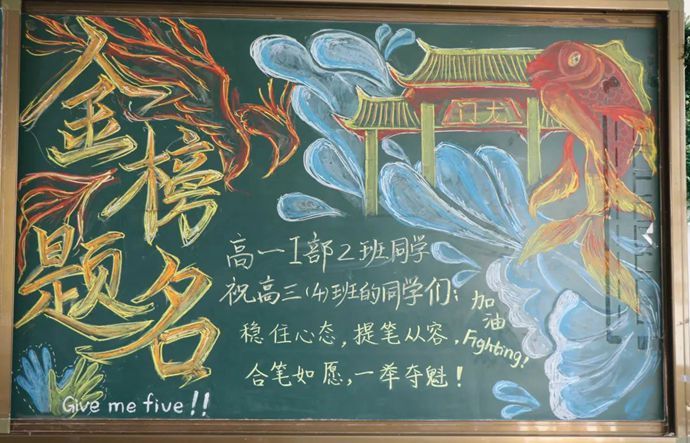 金榜
题名
门龙
高一I部2班同学
祝高三(4)班的同学们:
稳住心态,提笔从容,
合笔如愿,一举夺魁!
加油
Fighting!
Give me five!!